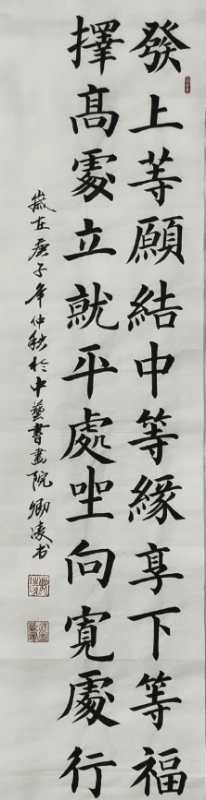 發上等願結中等緣享下等福
擇高處立就平處坐向寬處行
歲在庚子年仲秋於中藝書畫院卿凌书